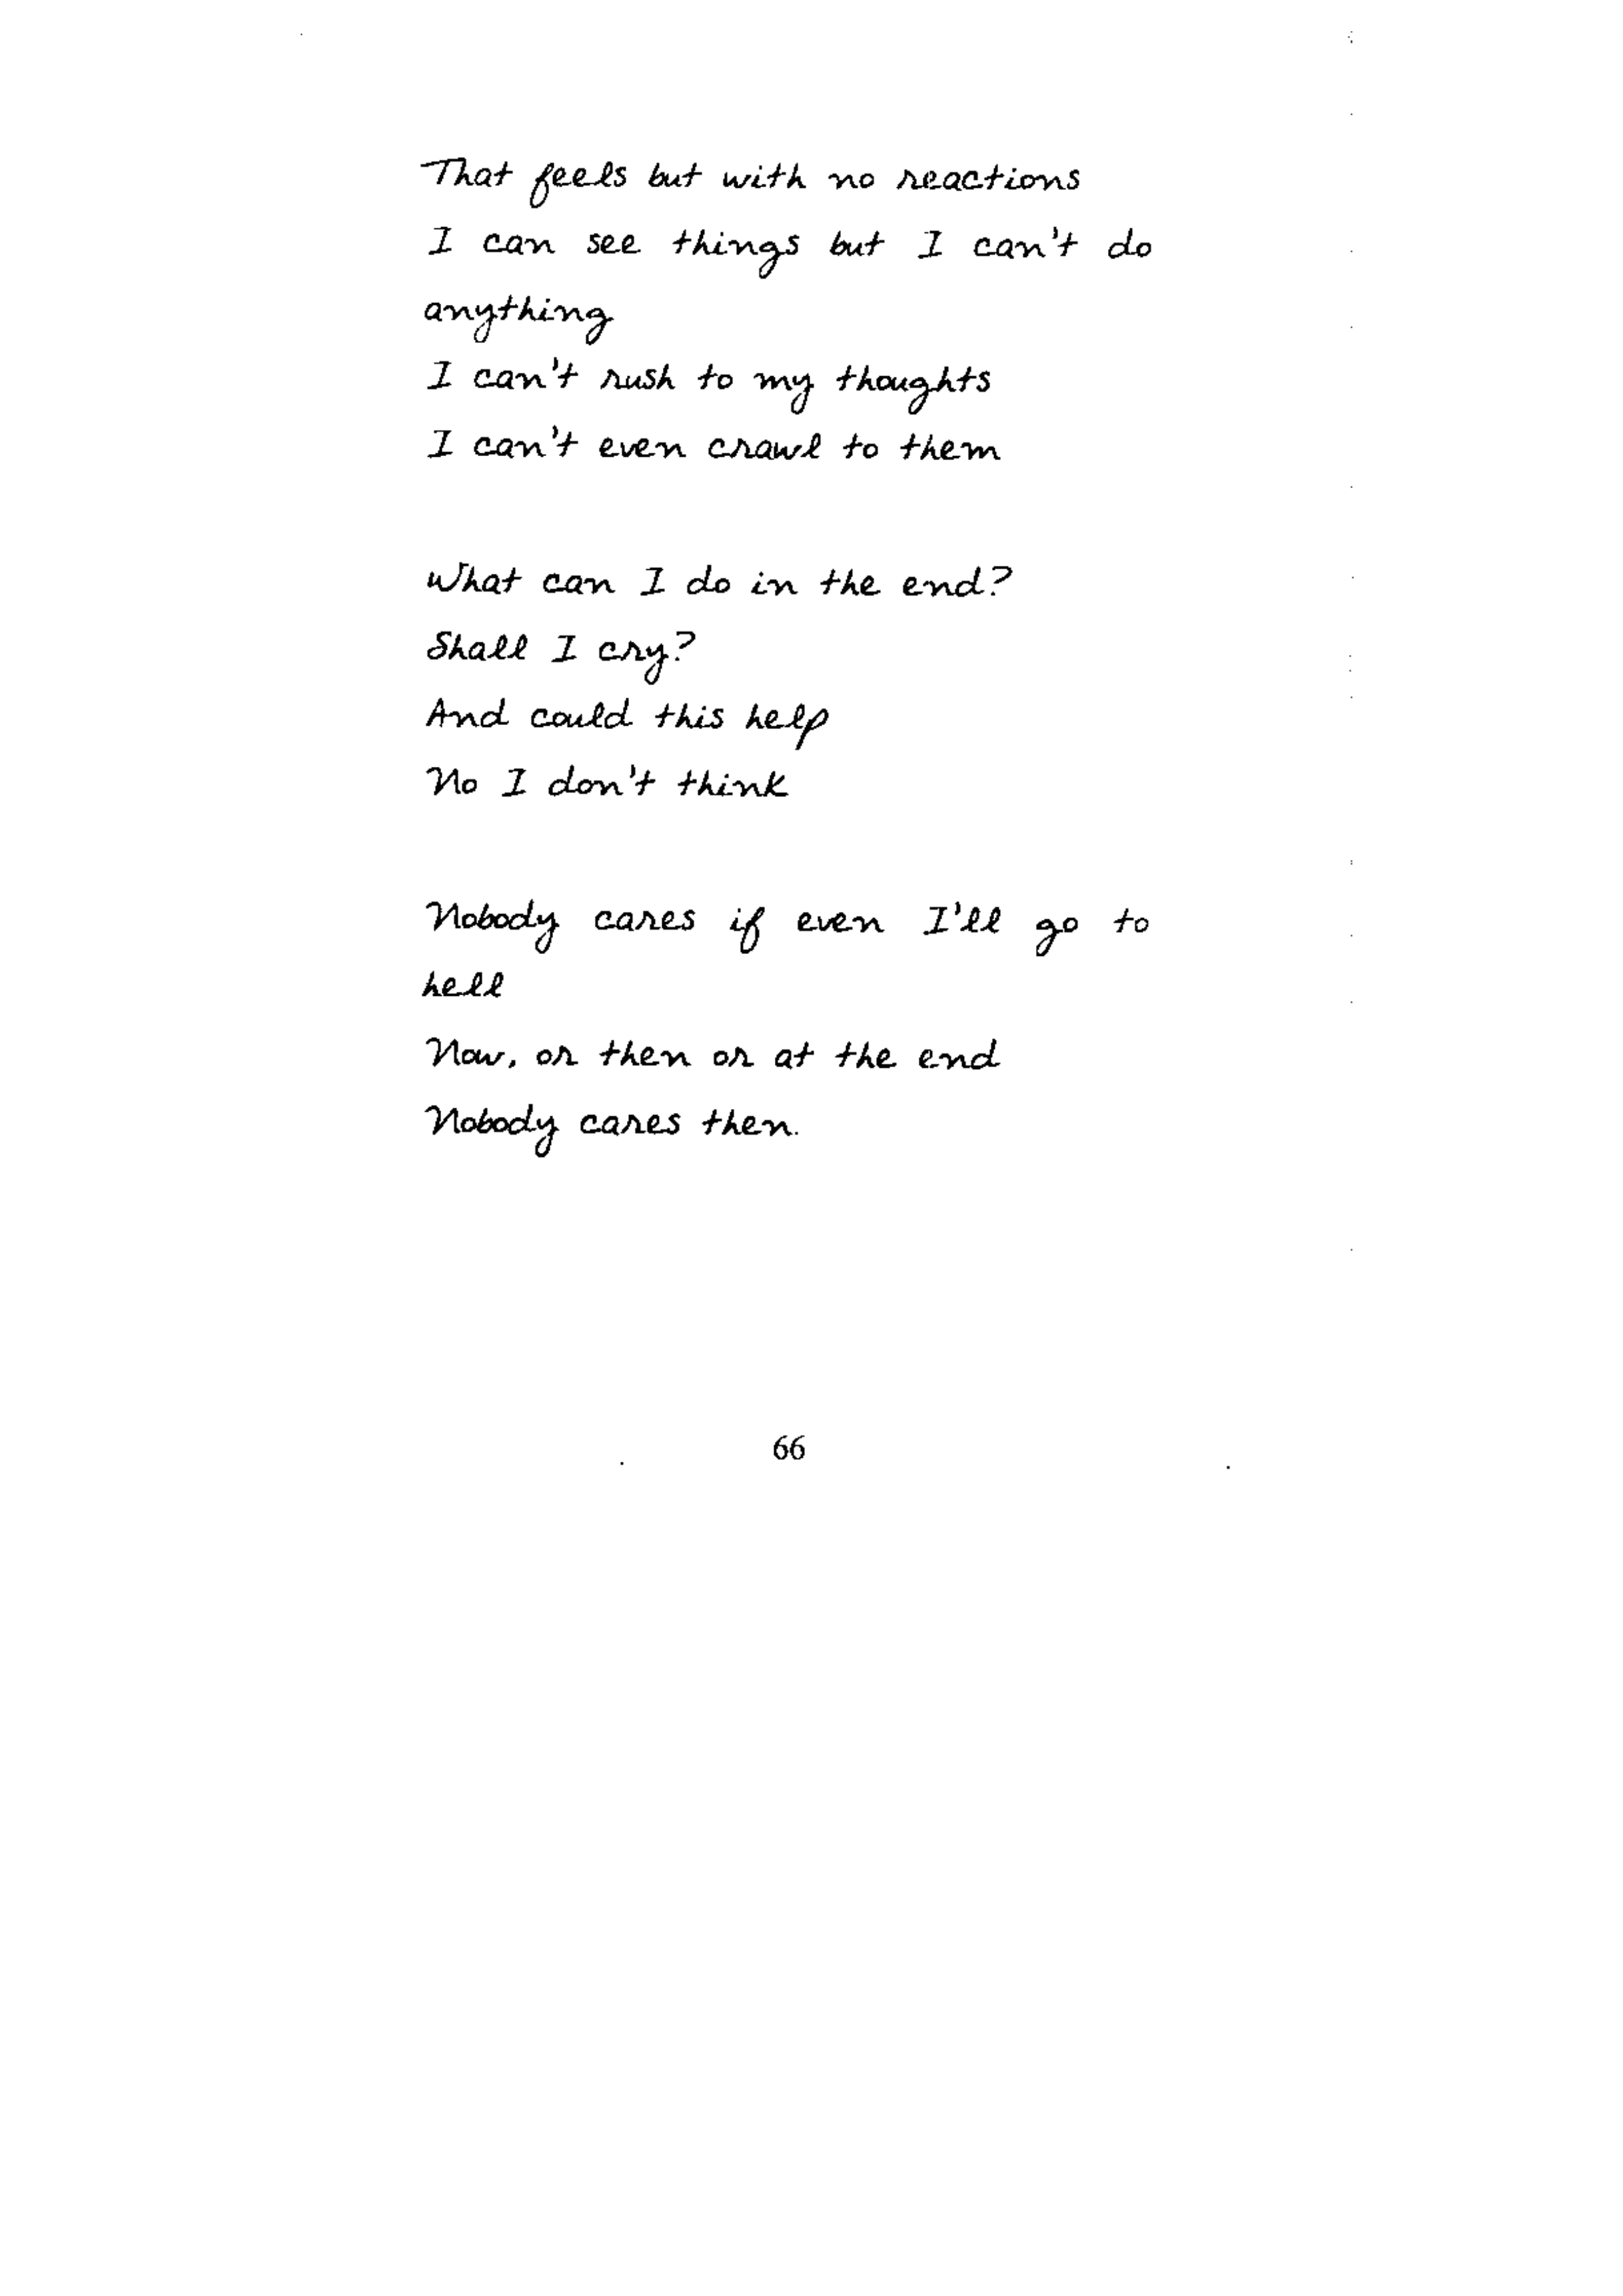 That feels but with no reactions
I can see things but I can't do
anything
I can't rush to my thoughts
I can't even crawl to them
What can I do in the end?
Shall I cry?
And could this help
No I don't think
Nobody cares if even I'll go to
hell
Now, or then or at the end
Nobody cares then.
66